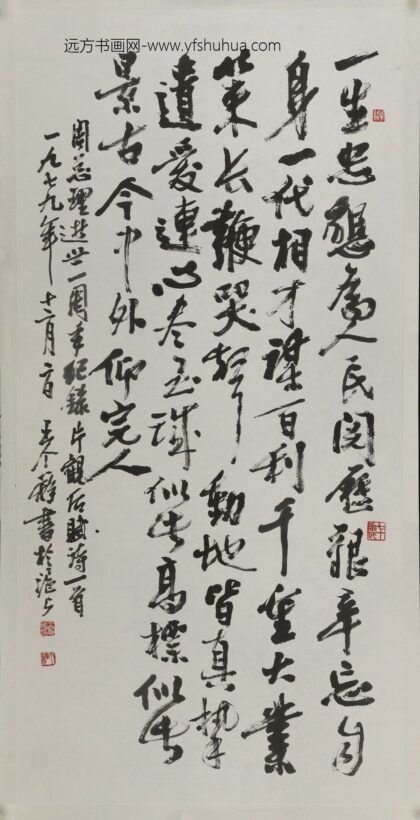 远方书画网-www.yfshuhua.com
一生忠恳为人民阅历艰辛忘自
身一代相才谋百利千里大业
策长鞭哭声动地皆真挚
遗爱连心尽至诚似此高标似此
景古今中外仰完人
周总理逝世一周年纪录片观后赋诗一首
一九七九年十二月一日王个簃书于沪上